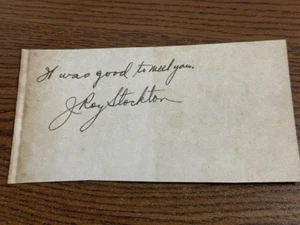 It was good to meet you.
J Roy Stockton